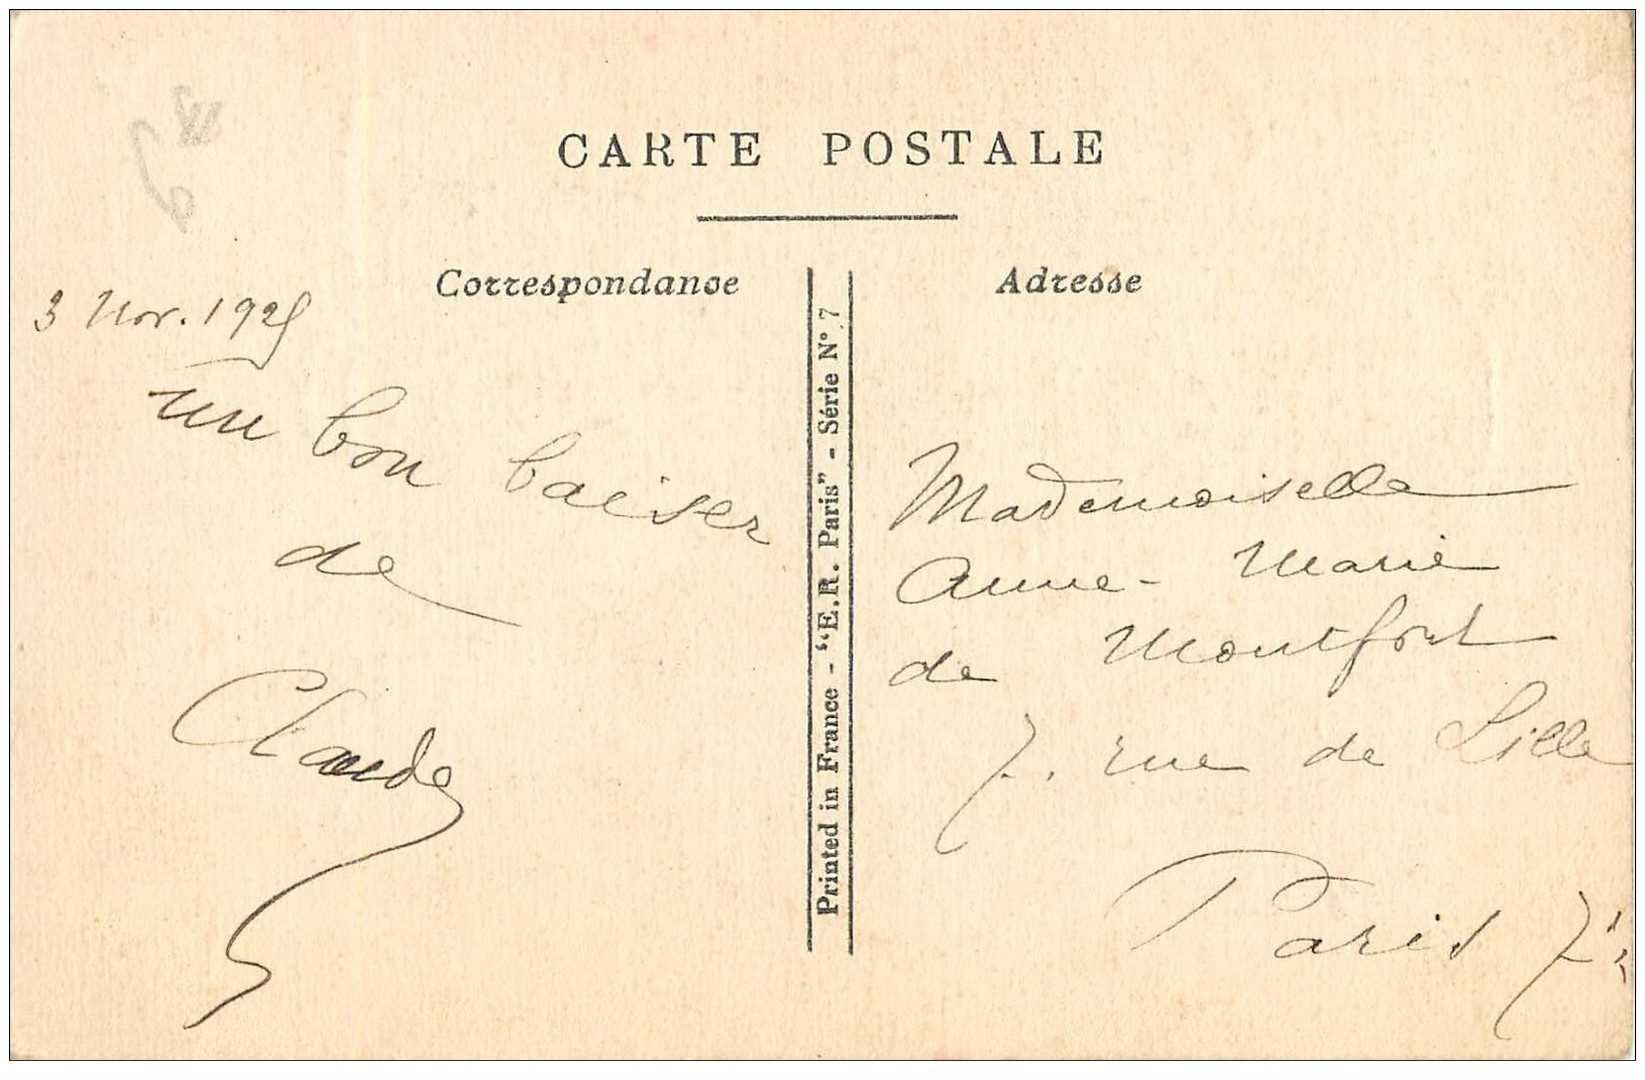 CARTE POSTALE
Correspondance
3 Nov. 1925
un bon baiser
de
Claude
Printed in France - "E.R. Paris" - Série N° 7
Adresse
Mademoiselle
Anne-Marie
de Montfort
7. rue de Lille
Paris 7è